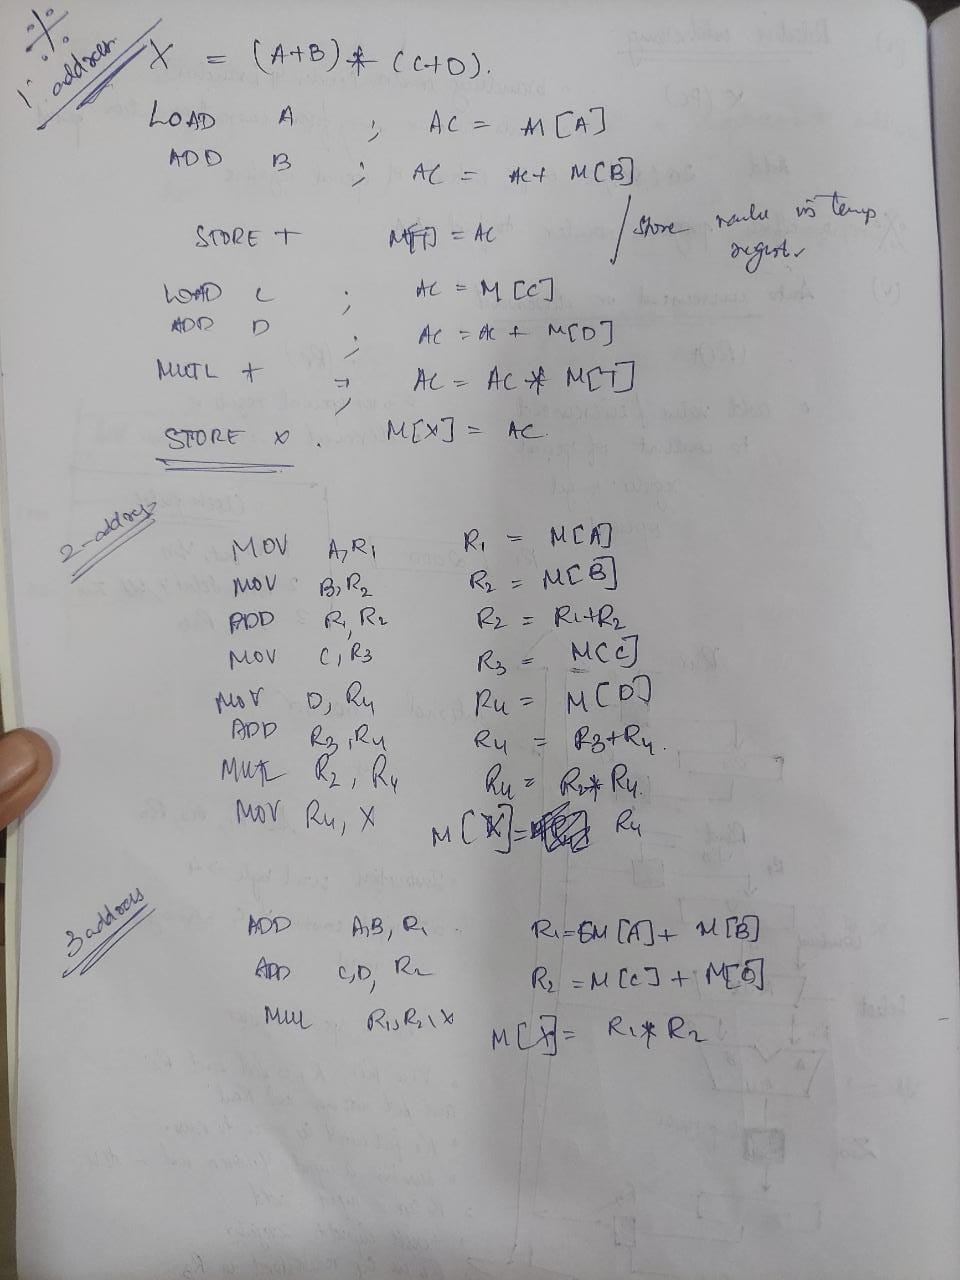 1 address
X = (A+B) * (C+D).
LOAD A ; AC = M[A]
ADD B ; AC = AC+ M[B]
STORE T M[T] = AC / Store in temp
LOAD C ; AC = M[C]
ADD D ; AC = AC + M[D]
MUTL T ; AC = AC * M[T]
STORE X . M[X] = AC
2-address
MOV A, R1 R1 = M[A]
MOV B, R2 R2 = M[B]
ADD R1, R2 R2 = R1+R2
MOV C, R3 R3 = M[C]
MOV D, R4 R4 = M[D]
ADD R3, R4 R4 = R3+R4.
MUTL R2, R4 R4 = R2* R4.
MOV R4, X M[X] = R4
3 address
ADD A,B, R1 . R1 = M[A] + M[B]
ADD C,D, R2 R2 = M[C] + M[D]
MUL R1, R2, X M[X] = R1 * R2